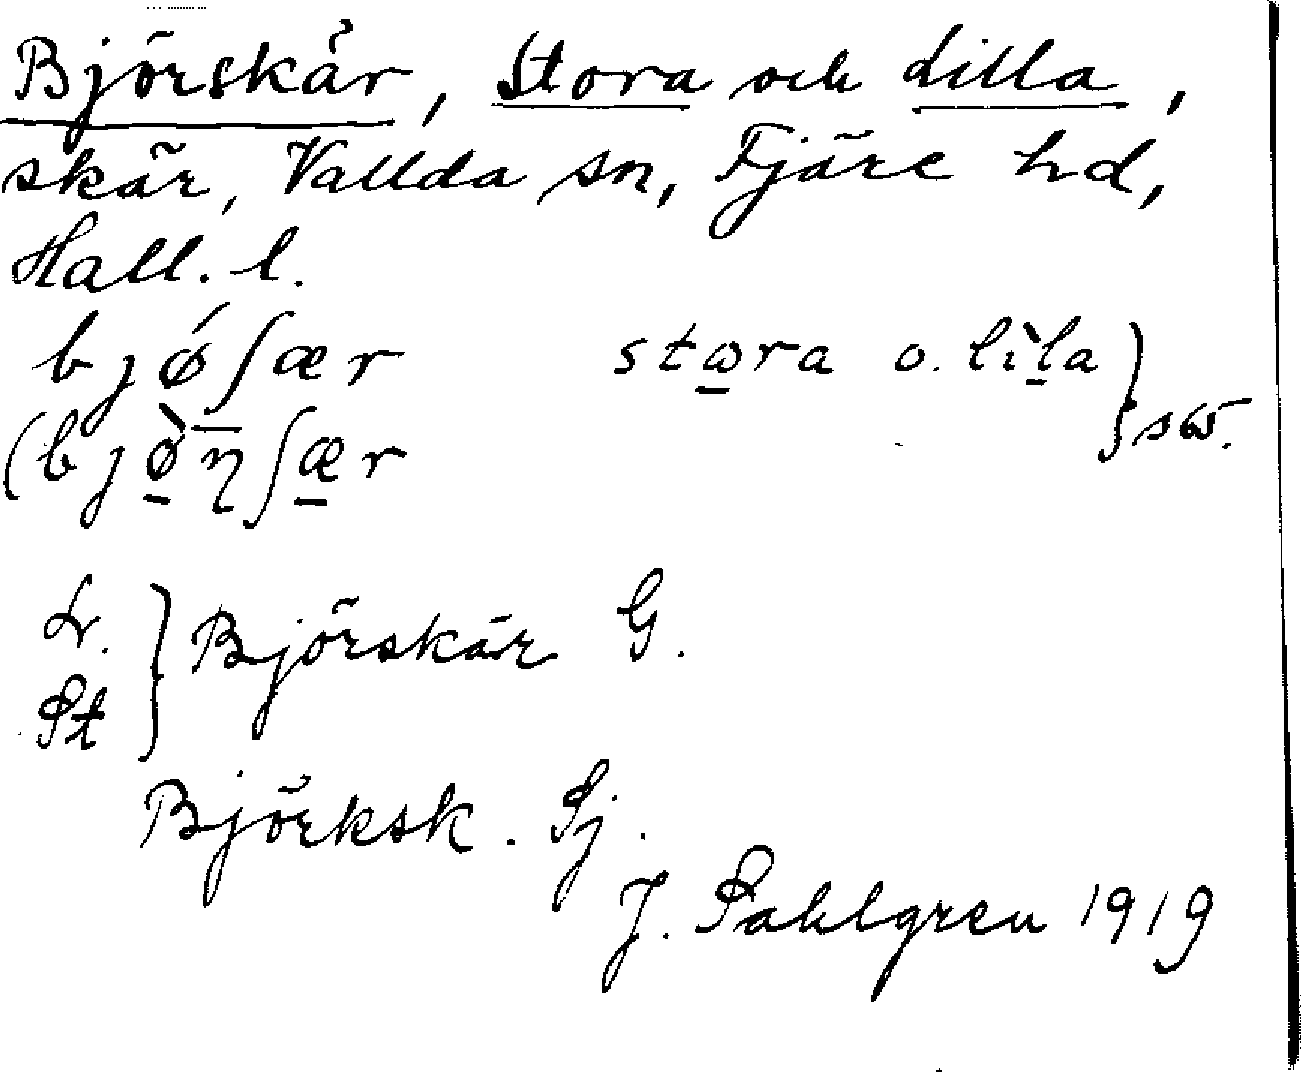 Björskär, Stora och Lilla,
skär, Vallda sn, Fjäre hd,
Hall. l.
bjǿʃær stɷra o. lìla } sɷ.
(bjø̀ŋʃær
L. St } Björskär G.
Björksk. Sj.
J. Sahlgren 1919